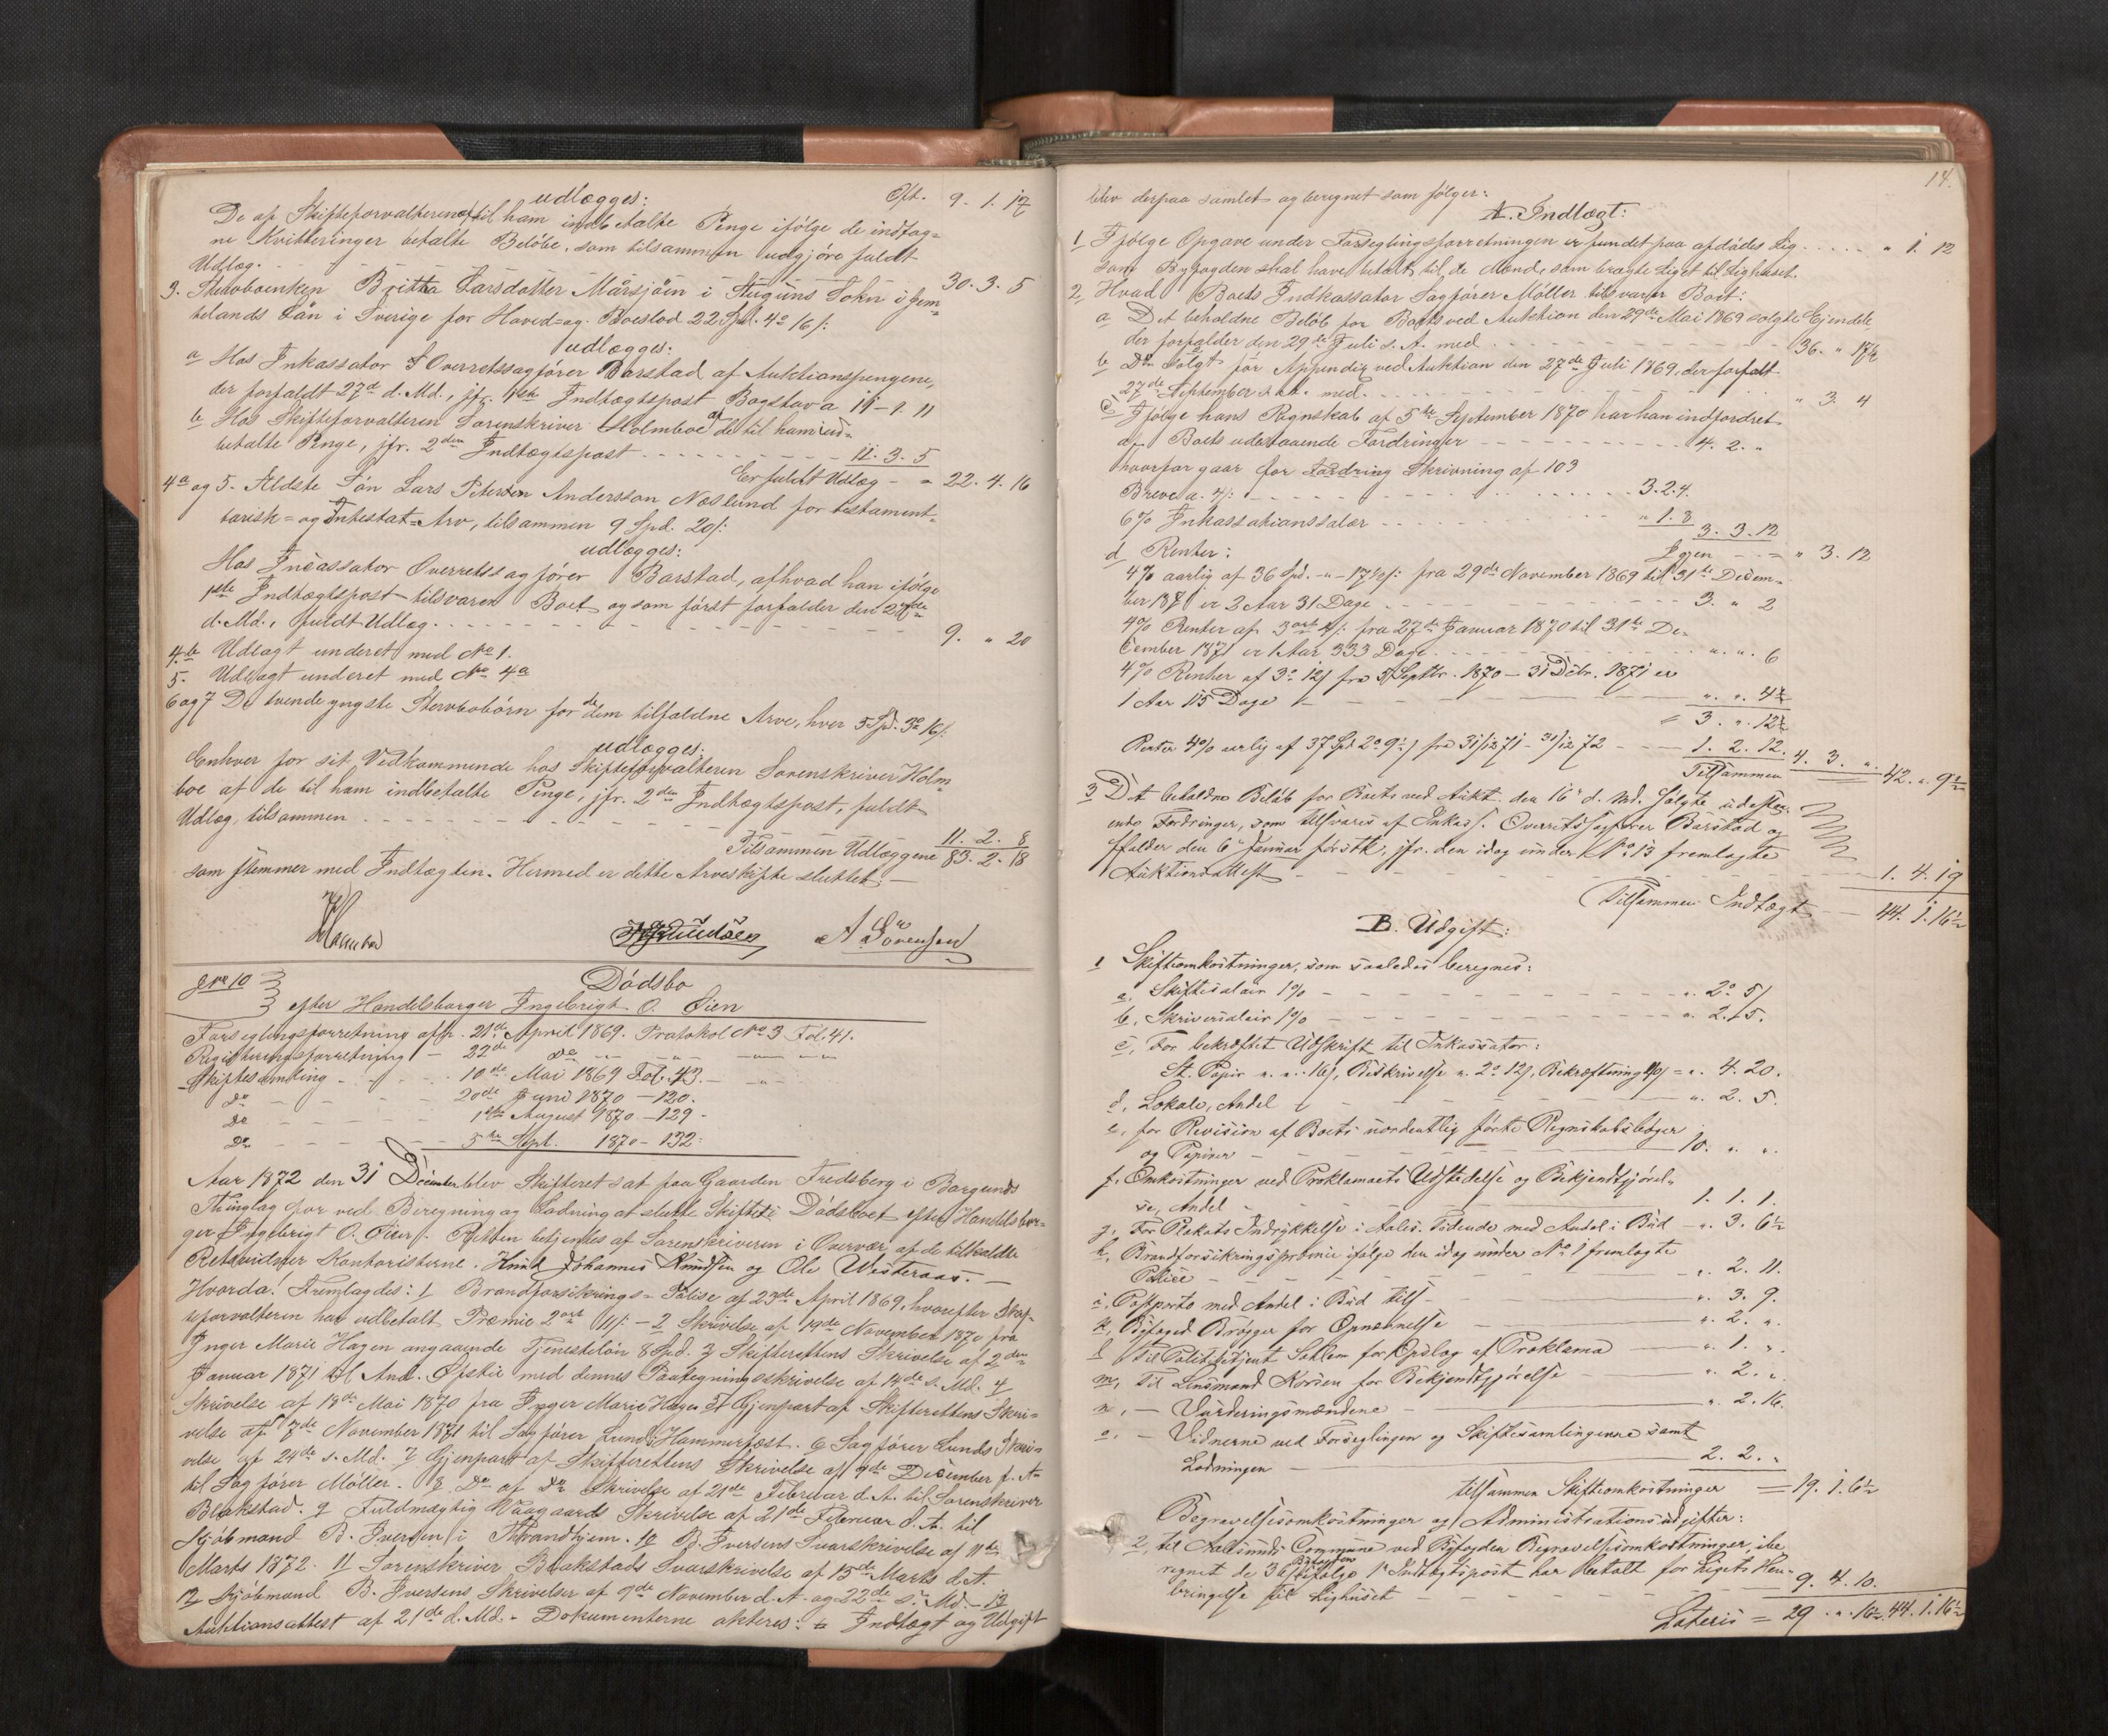 Oft. 9. 1. 17
udlægges:
De af Skifteforvalteren til ham indbetalte Penge ifølge de indtag=
ne Kvitteringer betalte Beløbe, som tilsammen udgjøre fuldt
Udlæg. 30. 3. 5
3. Sterboenken Britha Larsdotter Mårsjöen i Ströms Sokn i Jem=
telands Län i Sverige for Hoved= og Boeslod 22 Spd. 4° 16 s:
udlægges:
a Hos Inkassator Overretssagfører Barstad af Auktionspengene,
der forfaldt 27de d. Md., jfr. 1ste Indtægtspost Bogstav a 11 - 1. 11
b Hos Skifteforvalteren Sorenskriver Holmboe af de til ham ind=
betalte Penge, jfr. 2den Indtægtspost 11. 3. 5
Er fuldt Udlæg - 22. 4. 16
4a og 5. Ældste Søn Lars Petersen Andersson Næslund for testament=
tarisk= og Intestat= Arv, tilsammen 9 Spd. 20 s:
udlægges:
Hos Incassator Overretssagfører Barstad, af hvad han ifølge
1ste Indtægtspost tilsvarer Boet og som først forfalder den 27de
d. Md., fuldt Udlæg. 9. " 20
4b Udlagt underet med No 1.
5. Udlagt underet med No 4a
6 og 7 De tvende yngste Stervbobørn for de dem tilfaldne Arve, hver 5 Sp. 3° 16 s:
udlægges:
Enhver for sit Vedkommende hos Skifteforvalteren Sorenskriver Holm=
boe af de til ham indbetalte Penge, jfr. 2den Indtægtspost, fuldt
Udlæg, tilsammen 11. 2. 8
Tilsammen Udlæggene 83. 2. 18
som stemmer med Indtægten. Hermed er dette Arveskifte sluttet. —
Holmboe A Sörensen
Jno 10 Dødsbo
efter Handelsborger Ingebrigt O. Øien
Forseglingsforretning afh. 21de April 1869. Protokol No 3 Fol. 41.
Registreringsforretning - 22de do
Skiftesamling 10de Mai 1869 Fol. 43.
do 20de Juni 1870 - 120.
do 1ste August 1870 - 129 -
do 5te Sept. 1870 - 132.
Aar 1872 den 31 December blev Skifteret sat paa Gaarden Fredsberg i Borgunds
Thinglag for ved Beregning og Lodning at slutte Skiftet i Dødsboet efter Handelsbor=
ger Ingebrigt O. Øien. Retten betjentes af Sorenskriveren i Overvær af de tilkaldte
Retsvidner Kontoristerne Knud Johannes Knudsen og Ole Westeraas. —
Hvorda! Fremlagdes: 1 Brandforsikrings= Polise af 23de April 1869, hvorefter Skif=
teforvalteren har udbetalt Præmie 2 ort 11 s: - 2 Skrivelse af 19de November 1870 fra
Inger Marie Hagen angaaende Tjenesteløn 8 Spd. 3 Skifterettens Skrivelse af 2den
Januar 1871 til And. Øfstie med dennes Paategningsskrivelse af 14de s. Md. 4
Skrivelse af 19de Mai 1870 fra Inger Marie Hagen 5 Gjenpart af Skifterettens Skri=
velse af 7de November 1871 til Sagfører Lund i Hammerfest. 6 Sagfører Lunds Skri=
velse af 24de s. Md. 7 Gjenpart af Skifterettens Skrivelse af 9de December f. A.
til Sagfører Møller. 8 do af do Skrivelse af 21de Februar d. A. til Sorenskriver
Blakstad. 9 Fuldmægtig Vaagaards Skrivelse af 21de Februar d. A. til
Kjøbmand B. Iversen i Throndhjem. 10 B. Iversens Svarskrivelse af 11de
Marts 1872. 11 Sorenskriver Blakstads Svarskrivelse af 15de Marts d. A.
12 Kjøbmand B. Iversens Skrivelser af 9de November d. A. og 22de s. Md. - 13
Auktionsattest af 21de d. Md. - Dokumenterne akteres: Indtægt og Udgift
14.
blev derpaa samlet og beregnet som følger:
A. Indtægt:
1 Ifølge Opgave under Forseglingsforretningen er fundet paa afdødes Lig " 1. 12
som Byfogden skal have betalt til de Mænd, som bragte Liget til Lighuset.
2 Hvad Boets Indkassator Sagfører Møller tilsvarer Boet:
a Det beholdne Beløb for Boets ved Auktion den 29de Mai 1869 solgte Eiendele
der forfalder den 29de Juli s. A. med 36. " 17½
b Do solgt før Appendix ved Auktion den 27de Juli 1869, der forfaldt
27de September s. A. med " 3. 4
c Ifølge hans Regnskab af 5te September 1870 har han indfordret
af Boets udestaaende Fordringer 4. 2. "
hvorfor gaar for Fordring Skrivning af 103
Breve a 4 s: 3. 2. 4.
6% Inkassationssalær " 1. 8
3. 3. 12
Igjen " 3. 12
d Renter:
4% aarlig af 36 Spd. - " - 17½ s: fra 29de November 1869 til 31te Decem=
ber 1871 er 2 Aar 31 Dage 3. " 2
4% Renter af 3 ort 4 s: fra 27de Januar 1870 til 31te De=
cember 1871 er 1 Aar 333 Dage ". ". 6
4% Renter af 3° 12 s fra 5 Septbr. 1870 - 31 Dcbr. 1871 er
1 Aar 115 Dage ". ". 4½
3. ". 12½
Renter 4% aarlig af 37 Spd. 2° 9½ s fra 31/12 71 - 31/12 72 1. 2. 12. 4. 3. ".
Tilsammen 42. ". 9½
3 Det beholdne Beløb for Boets ved Aukt. den 16de d. Md. solgte udestaa=
ende Fordringer, som tilsvares af Inkass. Overretssagfører Barstad og
forfalder den 6te Januar førstk., jfr. den idag under No 13 fremlagte
Auktionsattest 1. 4. 19
Tilsammen Indtægt 44. 1. 16½
B. Udgift:
1 Skifteomkostninger, som saaledes beregnes:
a, Skiftesalair 1% ". 2° 5 s
b, Skriversalair 1% ". 2. 5.
c, For bekræftet Udskrift til Inkassator:
St. Papir ". ". 16 s, Beskrivelse ". 2° 12 s, Bekræftning = ". 4. 20.
d, Lokale, Andel ". 2. 5.
e, for Revision af Boets uordentlig førte Regnskabsbøger
og Papirer 10. ". ".
f, Omkostninger ved Proklamaets Udstedelse og Bekjendtgjørel=
se, Andel 1. 1. 1.
g, For Plakats Indrykkelse i Aales. Tidende med Andel i Bud ". 3. 6½
h, Brandforsikringspræmie ifølge den idag under No 1 fremlagte
Police ". 2. 11.
i, Postporto med Andel i Bud tils. ". 3. 9.
k, Byfoged Brøgger for Opnævnelse ". 2. ".
l, Til Politibetjent Sahlen for Opslag af Proklama ". 1. ".
m, Til Lensmand Korsen for Bekjendtgjørelse ". 2. ".
n, — Vurderingsmændene ". 2. 16.
o, — Vidnerne ved Forseglingen og Skiftesamlingerne samt
Lodningen 2. 2. "
tilsammen Skifteomkostninger = 19. 1. 6½
Begravelsesomkostninger og Administrationsudgifter:
2, til Aalesunds Commune ved Byfogden Begravelsesomkostninger, ibe=
regnet de 36 s Byfogden ifølge 1ste Indtægtspost har betalt for Ligets Hen=
bringelse til Lighuset 9. 4. 10.
Lateris = 29. ". 16½. 44. 1. 16½